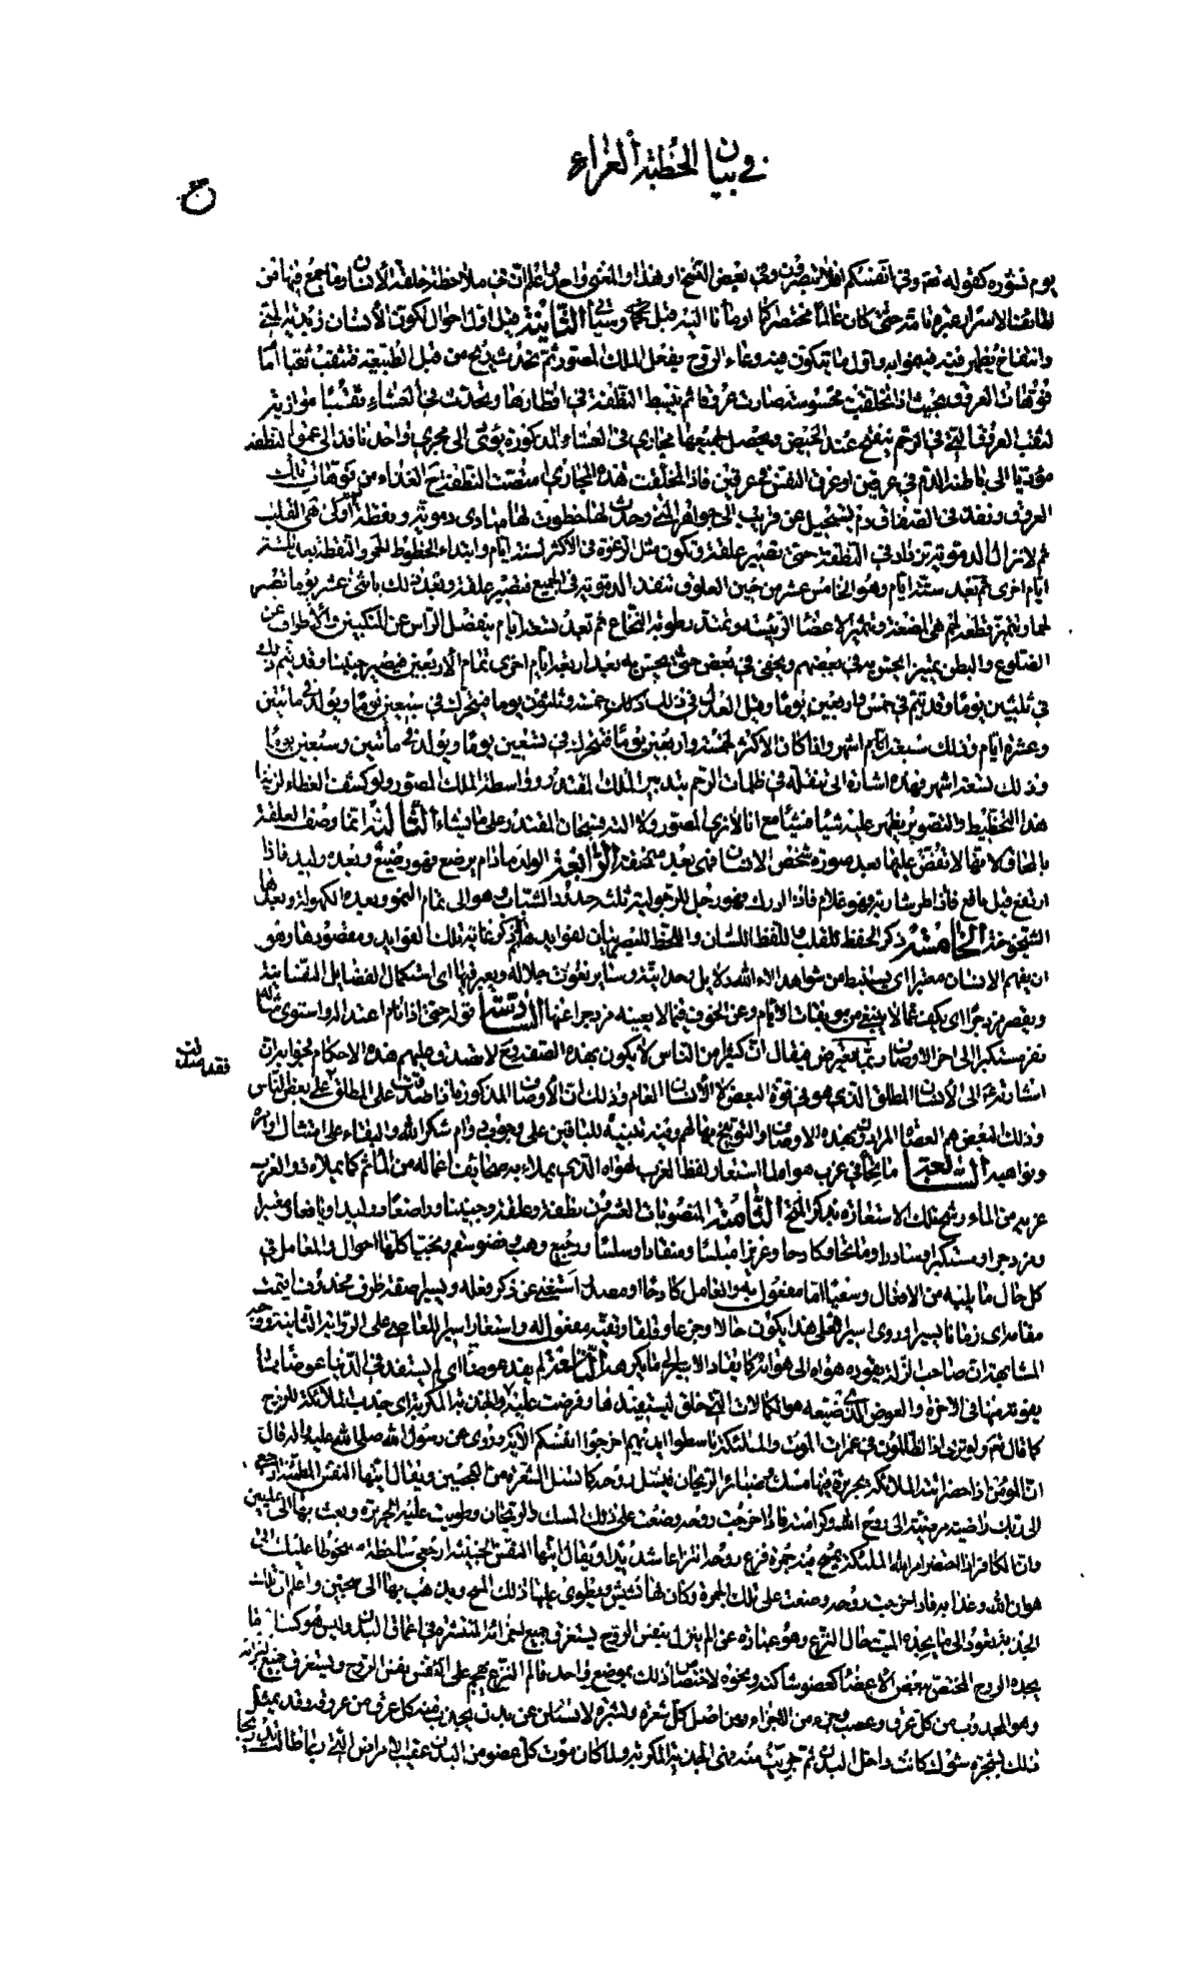 في بيان الخطبة الغراء
يوم نشوره كقوله تعالى وفي انفسكم افلا تبصرون وفي بعض النسخ او هذا والمعنى واحد واعلم ان في ملاحظة خلقة الانسان وما جمع فيها من
لطائف الاسرار عبرة تامة حتى كان عالما مختصرا كما اومأنا اليه قبل وسيأتي الثانية قيل اول احوال تكون الانسان زبدية المني
وانتفاخ يظهر فيه فيهوا به واول ما يتكون فيه وعاء الروح بفعل الملك المصور ثم يحدث من قبل الطبيعة فتثقب ثقبا اما
فوهات العروق بحيث اذا تخلقت محسوسة صارت عروقا ثم تنبسط النطفة في اقطارها ويحدث في الغشاء ثقب موازية
لثقب العروق التي في الرحم ينفتح عند الحيض ويحصل لجميعها مجاري في الغشاء المذكورة يؤدي الى مجرى واحد نافذ الى عمق النطفة
مؤديا الى باطنه الدم في عرقين او عرق النفس في عرقين فاذا تخلقت هذه المجاري امتصت النطفة ح الغذاء من فوهات تلك
العروق ونفذ في الصفاق دم يستحيل عن قريب الى جوهر المني وحدث لها خطوط لها مبادي دموية ونقطة اولى هي القلب
ثم لا تزال الدموية تزداد في النطفة حتى تصير علقة وتكون مثل الرغوة في الاكثر لستة ايام وابتداء الخطوط الحمر والنقطة بعد ثلثة
ايام اخرى ثم بعد ستة ايام وهو الخامس عشر من حين العلوق تنفذ الدموية في الجميع فتصير علقة وبعد ذلك باثنى عشر يوما تصير
لحما وتتميز قطعة لحم هي المضغة وتتميز الاعضاء الرئيسة وتمتد رطوبة النخاع ثم بعد تسعة ايام ينفصل الراس عن المنكبين والاطراف عن
الضلوع والبطن تميزا يحس به في بعضهم ويخفى في بعض حتى يحس به بعد اربعة ايام اخرى تمام الاربعين فيصير جنينا وقد يتم ذلك
في ثلثين يوما وقد يتم في خمس واربعين يوما وقيل العدل في ذلك خمسة وثلثون يوما فيتحرك في سبعين يوما ويولد في مائتين
وعشرة ايام وذلك سبعة اشهر واذا كان الاكثر لخمسة واربعين يوما فيتحرك في تسعين يوما ويولد في مائتين وسبعين يوما
وذلك تسعة اشهر فهذه اشارة الى تنقله في ظلمات الرحم بتدبير الملك المقتدر وواسطة الملك المصور ولو كشف الغطاء لراينا
هذا التخطيط والتصوير يظهر عليه شيئا فشيئا مع انا لا نرى المصور ولا آلته فسبحان المقتدر على ما يشاء الثالثة انما وصف العلقة
بالمحاق لانها لا تفض عليها بعد صورة شخص الانسان فهي بعد ممحقة الرابعة الولد مادام يرضع فهو رضيع وبعده وليد فاذا
ارتفع قيل يافع فاذا طر شاربه فهو غلام فاذا ادرك فهو رجل وللرجولية ثلث حدود الشباب وهو الى تمام النمو وبعده الكهولة وبعدها
الشيخوخة الخامسة ذكر الحفظ للقلب واللفظ للسان واللحظ للبصر بيان لفوايدها ثم ذكر غاية تلك الفوايد ومقصودها وهو
ان يفهم الانسان معتبرا اي يستنبط من شواهد الاء الله دلايل وحدانيته وساير نعوت جلاله ويعبر فيها اي استكمال الفضايل النفسانية
ويقصر مزدجرا اي يكف عما لا ينبغي من موبقات الاثام وعن الخوض فيما لا يعنيه مزدجرا عنها السادسة قوله حتى اذا قام اعتداله واستوى مثاله
نفر مستكبرا الى اخر الاوصاف ربما يعترض فيقال ان كثيرا من الناس لا يكون بهذه الصفة وح لا تصدق عليهم هذه الاحكام فجوابه ان
فقد صدقت
اشارته الى الانسان المطلق الذي هو في قوة البعض لا الانسان العام وذلك ان الاوصاف المذكورة اذا صدقت على المطلق على بعض الناس
وذلك البعض هم العصاة المرادون بهذه الاوصاف والتوبيخ بها لهم وفيه تنبيه للباقين على وجوب دوام شكر الله والبقاء على امتثال اوامره
ونواهيه السابعة ماتحا في غرب هواه استعار لفظ الغرب لهواه الذي يملاء به صحائف اعماله من المآثم كما يملاء ذو الغرب
غربه من الماء ورشح تلك الاستعارة بذكر المتح الثامنة المنصوبات العشرون نطفة وعلقة وجنينا وراضعا ووليدا ويافعا ومعتبرا
ومزدجرا ومستكبرا وسادرا وماتحا وكادحا وغريرا ومبلسا ومنقادا وسلسا ورجيع وصب ونضو سقم وتحتيا كلها احوال والعامل في
كل حال ما يليه من الافعال وسعيا اما مفعول به والعامل كادحا او مصدر استغنى عن ذكر فعله ويسيرا صفة ظرف محذوف اقيمت
مقامه اي زمانا يسيرا وروي اسيرا فعلى هذا يكون حالا وجزعا وقلقا وتقية مفعول له واستعار اسير للعاصي على الرواية الثانية ووجه
المشابهة ان صاحب الزلة يقوده هواه الى هوانه كما يقاد الاسير الى ما يكره التاسعة لم يفد عوضا اي لم يستفد في الدنيا عوضا مما
يفوته منها في الاخرة والعوض الذي ضيعه هو الكمالات التي خلق ليستفيدها وفرضت عليه والجذبة المكربة اي جذب الملائكة للروح
كما قال تعالى ولو ترى اذ الظالمون في غمرات الموت والملئكة باسطوا ايديهم اخرجوا انفسكم الاية وروي عن رسول الله صلى الله عليه واله قال
ان المؤمن اذا احتضر اتته الملائكة بحريرة فيها مسك وضبائر الريحان فتسل روحه كما تسل الشعرة من العجين ويقال ايتها النفس المطمئنة ارجعي
الى ربك راضية مرضية الى روح الله وكرامته فاذا خرجت روحه وضعت على ذلك المسك والريحان وطويت عليه الحريرة وبعث بها الى عليين
وان الكافر اذا احتضر امر الله الملئكة بمسح فيه جمرة فتنزع روحه انتزاعا شديدا ويقال ايتها النفس الخبيثة ارجعي ساخطة مسخوطا عليك الى
هوان الله وعذابه فاذا خرجت روحه وضعت على تلك الجمرة وكان لها نشيش ويطوى عليها ذلك المسح ويذهب بها الى سجين واعلم ان تلك
الجذبة تعود الى ما يجده الميت حال النزع وهو عبارة عن الم ينزل بنفس الروح يستغرق جميع اجزائه المنتشرة في اعماق البدن وليس هو كساير ما
يجده الروح المختص ببعض الاعضاء كعضو شاكته ونحوه لاختصاص ذلك بموضع واحد فالم النزع يهجم على نفس الروح ويستغرق جميع اجزائه
وهو المجذوب من كل عرق وعصب وجزء من الاجزاء ومن اصل كل شعرة وبشرة لا تسئلن عن بدن يجذب منه كل عرق من عروقه وقد يمثل
ذلك بشجرة شوك كانت داخل البدن ثم جذبت منه فهي الجذبة المكربة ولما كان موت كل عضو من البدن عقيب الامراض التي ربما طالت